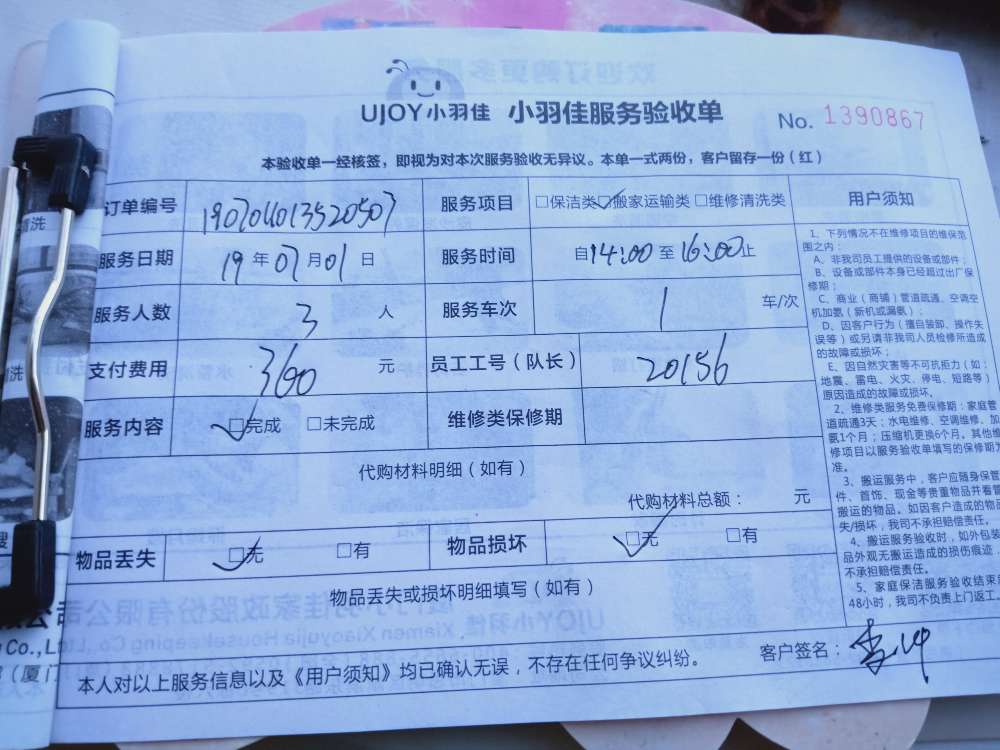 UJOY小羽佳 小羽佳服务验收单 No. 1390867
本验收单一经核签，即视为对本次服务验收无异议。本单一式两份，客户留存一份（红）
订单编号 19070401352050 服务项目 □保洁类 ☑搬家运输类 □维修清洗类
服务日期 19年07月01日 服务时间 自14:00至16:00止
服务人数 3 人 服务车次 1 车/次
支付费用 360 元 员工工号（队长） 20156
服务内容 ☑完成 □未完成 维修类保修期
代购材料明细（如有）
代购材料总额： 元
物品丢失 ☑无 □有 物品损坏 ☑无 □有
物品丢失或损坏明细填写（如有）
本人对以上服务信息以及《用户须知》均已确认无误，不存在任何争议纠纷。 客户签名：
用户须知
1、下列情况不在维修项目的维保范
围之内：
A、非我司员工提供的设备或部件；
B、设备或部件本身已经超过出厂保
修期；
C、商业（商铺）管道疏通、空调空
机加氨（新机或漏氨）；
D、因客户行为（擅自装卸、操作失
误等）或另请非我司人员检修所造成
的故障或损坏；
E、因自然灾害等不可抗拒力（如：
地震、雷电、火灾、停电、短路等）
原因造成的故障或损坏。
2、维修类服务免费保修期：家庭管
道疏通3天；水电维修、空调维修、加
氨1个月；压缩机更换6个月。其他维
修项目以服务验收单填写的保修期为
准。
3、搬运服务中，客户应随身保管
件、首饰、现金等贵重物品并看管
搬运的物品。如因客户造成的物品
失/损坏，我司不承担赔偿责任。
4、搬运服务验收时，如外包装
品外观无搬运造成的损伤痕迹，
不承担赔偿责任。
5、家庭保洁服务验收结束
48小时，我司不负责上门返工。